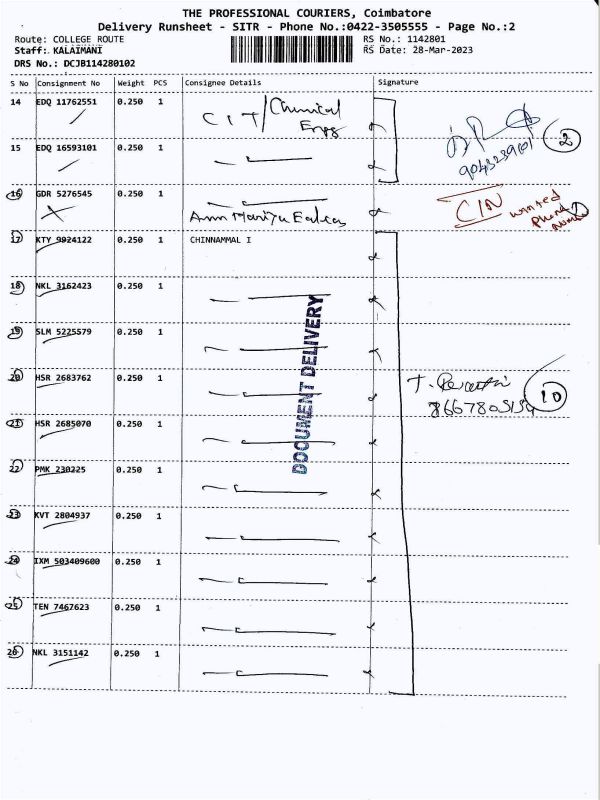 THE PROFESSIONAL COURIERS, Coimbatore
Delivery Runsheet - SITR - Phone No.:0422-3505555 - Page No.:2
Route: COLLEGE ROUTE RS No.: 1142801
Staff: KALAIMANI RS Date: 28-Mar-2023
DRS No.: DCJB114280102
S No Consignment No Weight PCS Consignee Details Signature
14 EDQ 11762551 0.250 1 CIT/Chemical
Engg
2
15 EDQ 16593101 0.250 1
16 GDR 5276545 0.250 1
CIN wanted
17 KTY 9924122 0.250 1 CHINNAMMAL I
18 NKL 3162423 0.250 1
19 SLM 5225579 0.250 1
20 HSR 2683762 0.250 1
10
21 HSR 2685070 0.250 1
22 PMK 230225 0.250 1
23 KVT 2804937 0.250 1
24 IXM 503409600 0.250 1
25 TEN 7467623 0.250 1
26 NKL 3151142 0.250 1
DOCUMENT DELIVERY